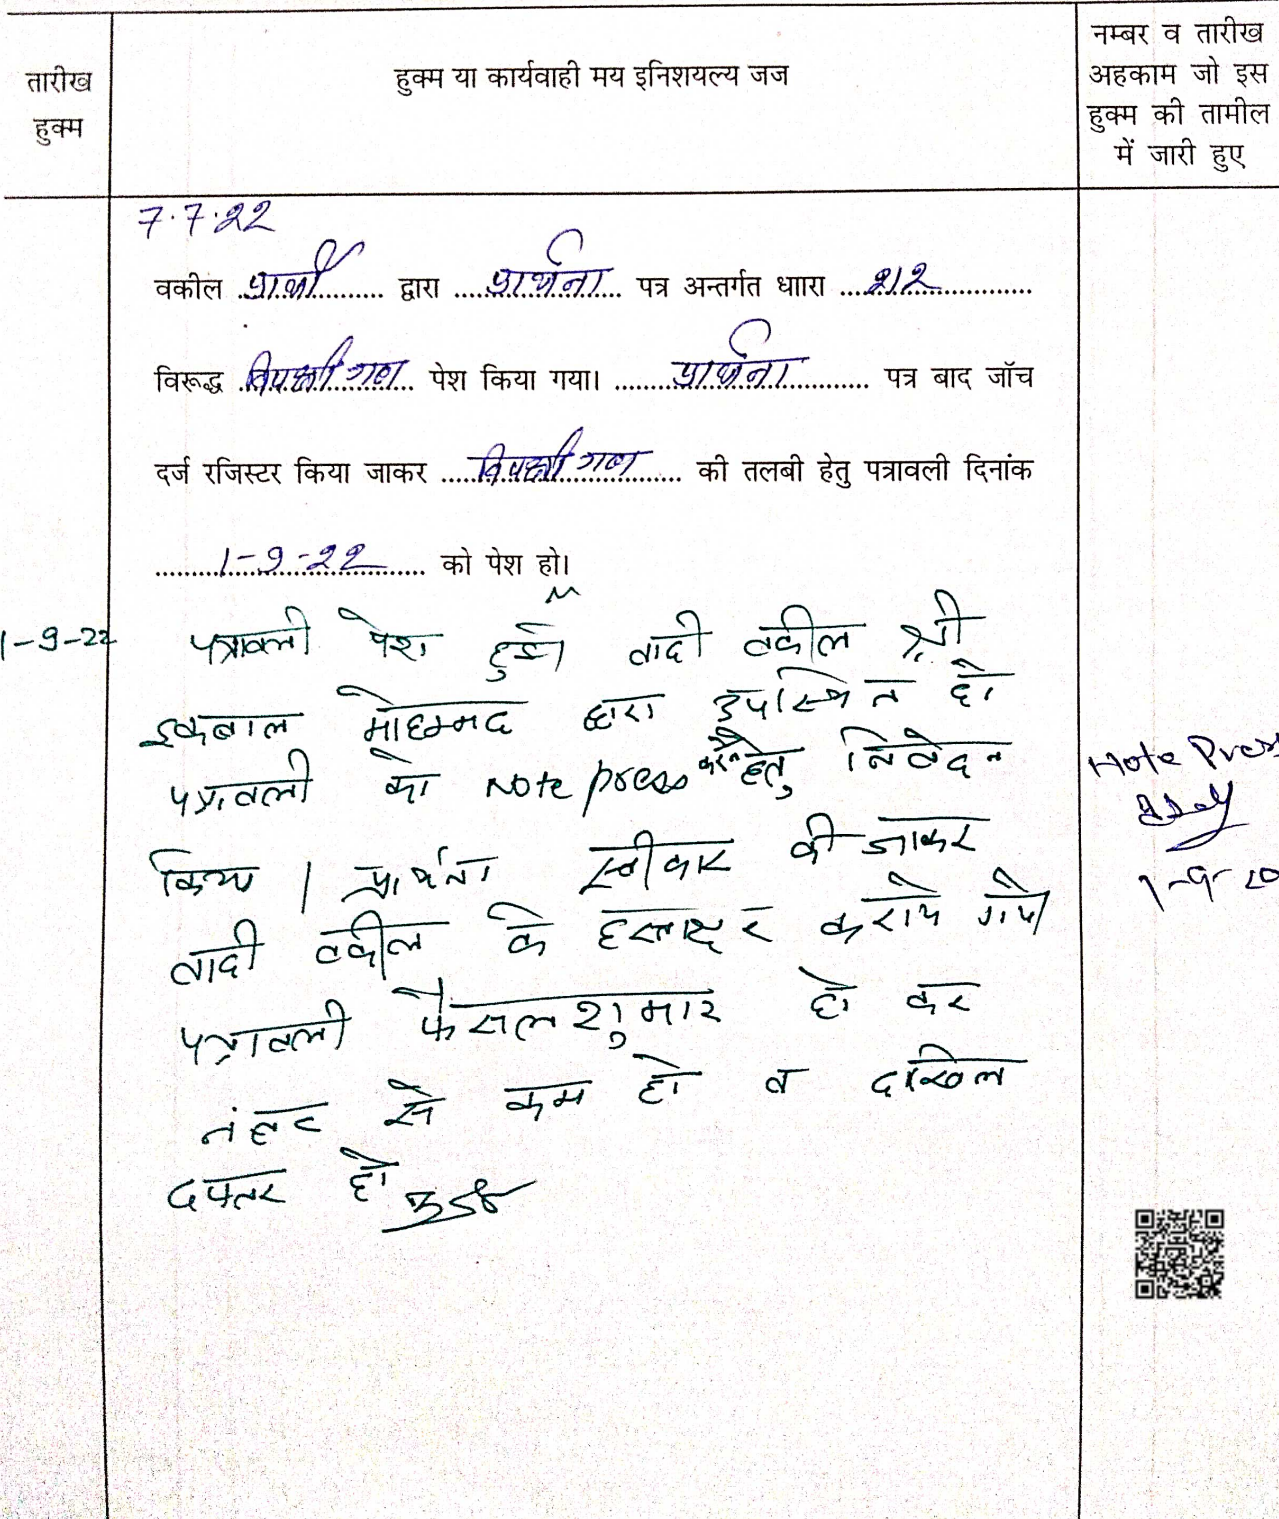 तारीख
हुक्म
हुक्म या कार्यवाही मय इनिशयल्य जज
नम्बर व तारीख
अहकाम जो इस
हुक्म की तामील
में जारी हुए
7.7.22
वकील प्रार्थी द्वारा प्रार्थना पत्र अन्तर्गत धाारा 212
विरूद्ध विपक्षी गण पेश किया गया। प्रार्थना पत्र बाद जॉच
दर्ज रजिस्टर किया जाकर विपक्षी गण की तलबी हेतु पत्रावली दिनांक
1-9-22 को पेश हो।
1-9-22 पत्रावली पेश हुई। वादी वकील श्री
इकबाल मोहम्मद द्वारा उपस्थित हो
पत्रावली को Note press करने हेतु निवेदन
किया। प्रार्थना स्वीकार की जाकर
वादी वकील के हस्ताक्षर कराये गये
पत्रावली फैसल शुमार हो कर
नंबर से कम हो व दाखिल
दफ्तर हो
Note Press
1-9-20